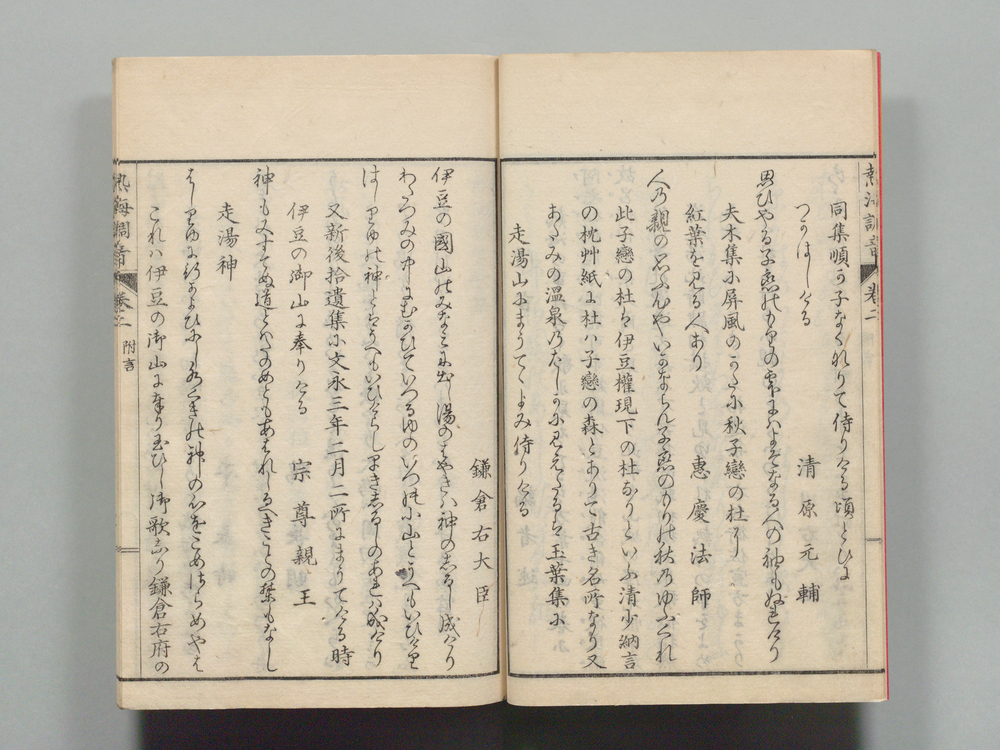 熱海調音 巻二
同集順の子なくなりて侍りける頃とひに
つかはしける
清原元輔
思ひやる子恋のもりの雫にはよそなる人の袖もぬれけり
夫木集に屏風のゑに秋子戀の杜に
紅葉を見る人あり
恵慶法師
人乃親の思ふ心やいかならん子恋のもりの秋乃ゆふくれ
此子戀の杜は伊豆權現下の杜なりといふ清少納言
の枕艸紙に杜ハ子戀の森とありて古き名所なり又
あたみの温泉乃たしかに見えたるは玉葉集に
走湯山にまうてゝよみ侍りける
鎌倉右大臣
伊豆の國山のみなみに出る湯のはやきハ神のしるし成けり
わたつみの中にむかひていつるゆのいつのを山とうへもいひけり
はしりゆの神とはうへもいひけらしはやきしるしのあれハ成けり
又新後拾遺集に文永三年二月二所にまうてける時
伊豆の御山に奉りける
宗尊親王
神も又すてぬ道とは
走湯神
はしりゆに
これハ伊豆の御山に奉り玉ひし御歌なり鎌倉右府の
熱海調音 巻二 附言